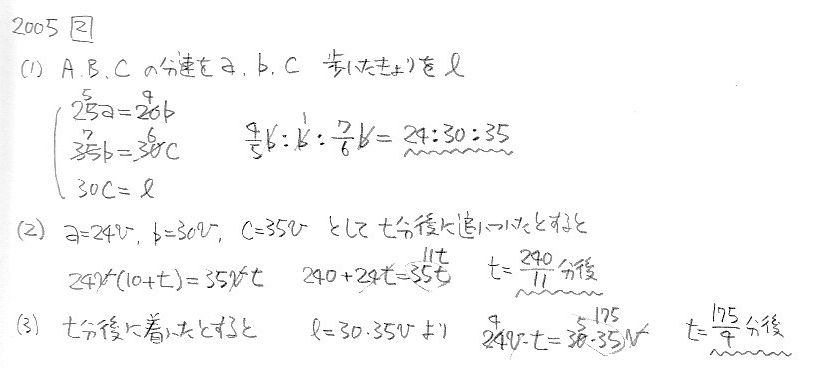 2005 [2]
(1) A, B, C の分速を a, b, c 歩いたきょりを l
25a = 20b
35b = 30c 4/5 b : b : 7/6 b = 24 : 30 : 35
30c = l
(2) a=24v, b=30v, c=35v として t分後に追いついたとすると
24v(10+t) = 35vt 240+24t=35t 11t t=240/11 分後
(3) t分後に着いたとすると l=30·35v より 24v·t=30·35v 175 t=175/4 分後